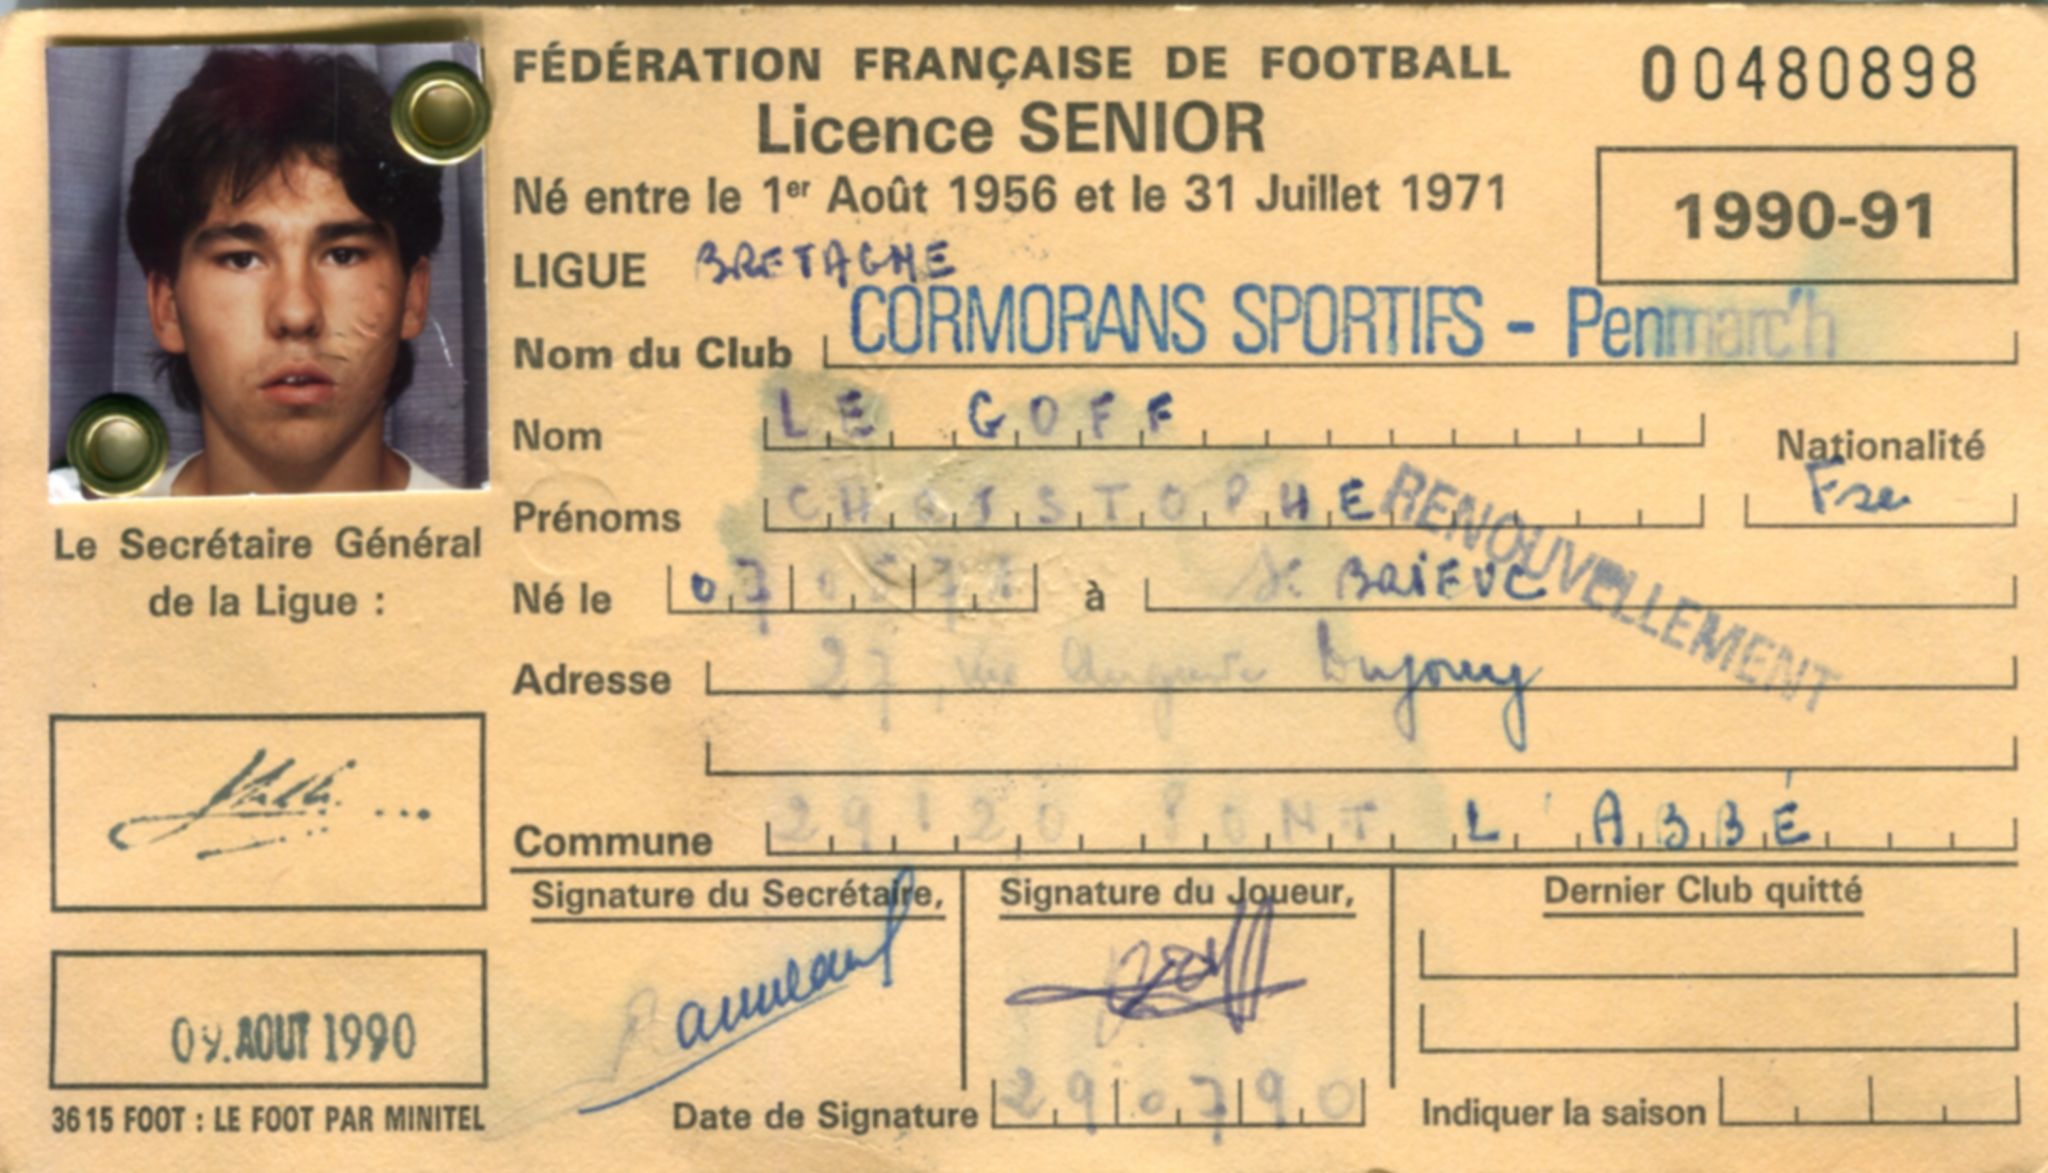 FÉDÉRATION FRANÇAISE DE FOOTBALL
00480898
Licence SENIOR
Né entre le 1er Août 1956 et le 31 Juillet 1971
1990-91
LIGUE BRETAGNE
Nom du Club CORMORANS SPORTIFS - Penmarc'h
Nom LE GOFF
Nationalité
Fse
Prénoms CHRISTOPHE
RENOUVELLEMENT
Le Secrétaire Général
de la Ligue :
Né le 07 à St BRIEUC
Adresse 27, rue
Commune 29120 PONT L'ABBÉ
Signature du Secrétaire,
Signature du Joueur,
Dernier Club quitté
09. AOUT 1990
3615 FOOT : LE FOOT PAR MINITEL
Date de Signature 290790
Indiquer la saison